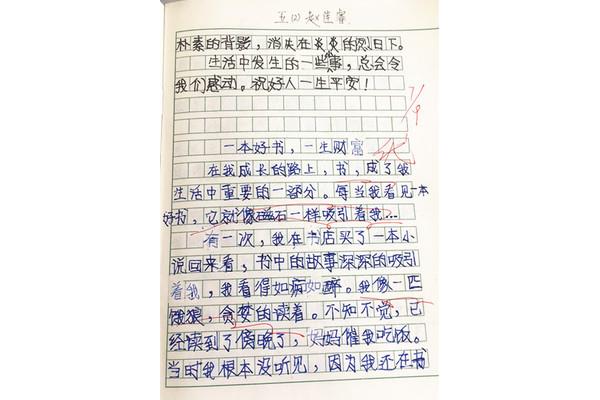 五(2) 赵佳睿
朴素的背影，消失在炎炎的烈日下。
生活中发生的一些事，总会令
我们感动。祝好人一生平安！
7/9
一本好书，一生财富
优
在我成长的路上，书，成了我
生活中重要的一部分。每当我看见一本
好书，它就像磁石一样吸引着我…
有一次，我在书店买了一本小
说回来看，书中的故事深深的吸引
着我，我看得如痴如醉。我像一匹
饿狼，贪婪的读着。不知不觉，已
经读到了傍晚了，妈妈催我吃饭。
当时我根本没听见，因为我还在书